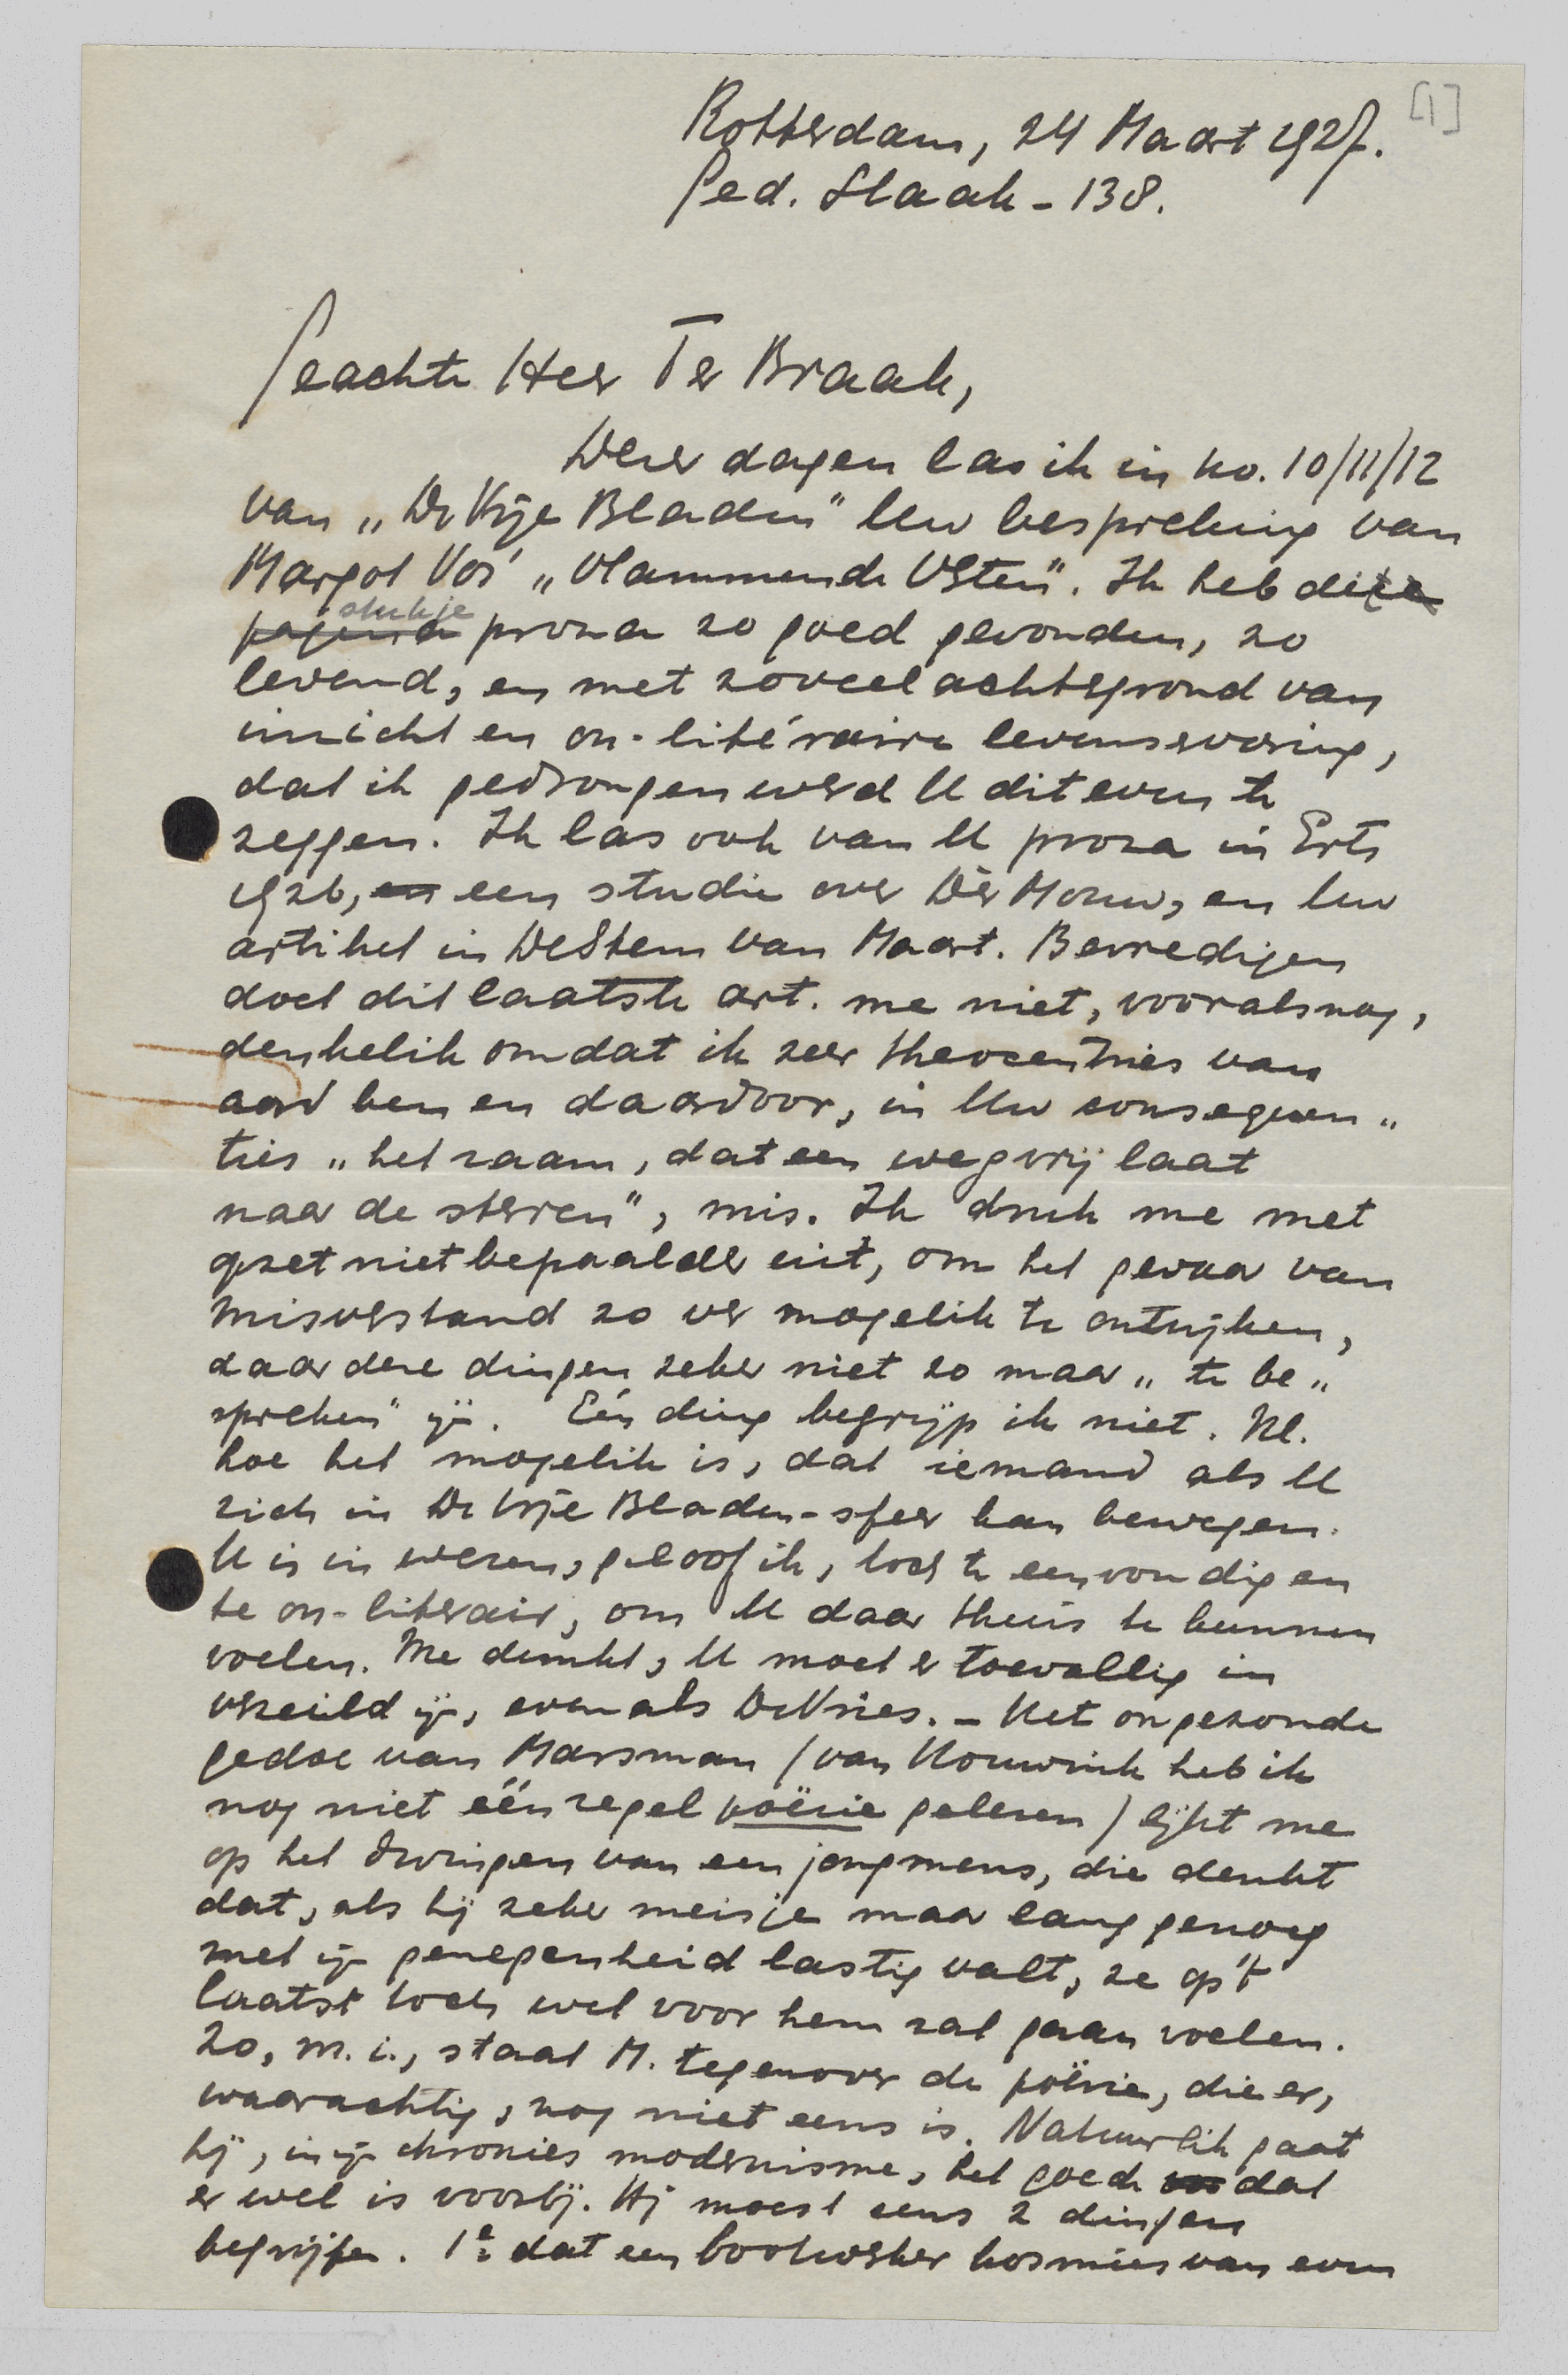 [1]
Rotterdam, 24 Maart 1927.
Ged. Slaak - 138.
Geachte Heer Ter Braak,
Dezer dagen las ik in no. 10/11/12
van „De Vrije Bladen" Uw bespreking van
Margot Vos' „Vlammende Verten". Ik heb dit
stukje proza zo goed gevonden, zo
levend, en met zoveel achtergrond van
inzicht en on-litéraire levenservaring,
dat ik gedrongen werd U dit even te
zeggen. Ik las ook van U proza in Erts
1926, een studie over Dèr Mouw, en Uw
artikel in De Stem van Maart. Bevredigen
doet dit laatste art. me niet, vooralsnog,
denkelik omdat ik zeer theocentries van
aard ben en daardoor, in Uw consequen„
ties „het raam, dat een weg vrij laat
naar de sterren", mis. Ik druk me met
opzet niet bepaalder uit, om het gevaar van
misverstand zo ver mogelik te ontwijken,
daar deze dingen zeker niet zo maar „te be„
spreken" zijn. Eén ding begrijp ik niet. Nl.
hoe het mogelik is, dat iemand als U
zich in De Vrije Bladen-sfeer kan bewegen.
U is in wezen, geloof ik, toch te eenvoudig en
te on-literair, om U daar thuis te kunnen
voelen. Me dunkt, U moet er toevallig in
verzeild zijn, evenals De Vries. - Het ongezonde
gedoe van Marsman (van Houwink heb ik
nog niet één regel poëzie gelezen) lijkt me
op het dwingen van een jongmens, die denkt
dat, als hij zeker meisje maar lang genoeg
met zijn genegenheid lastig valt, ze op 't
laatst toch wel voor hem zal gaan voelen.
Zo, m.i., staat M. tegenover de poëzie, die er,
waarachtig, nog niet eens is. Natuurlik gaat
hij, in zijn chronies modernisme, het goede dat
er wel is voorbij. Hij moest eens 2 dingen
begrijpen. 1e dat een bootwerker kosmies van even